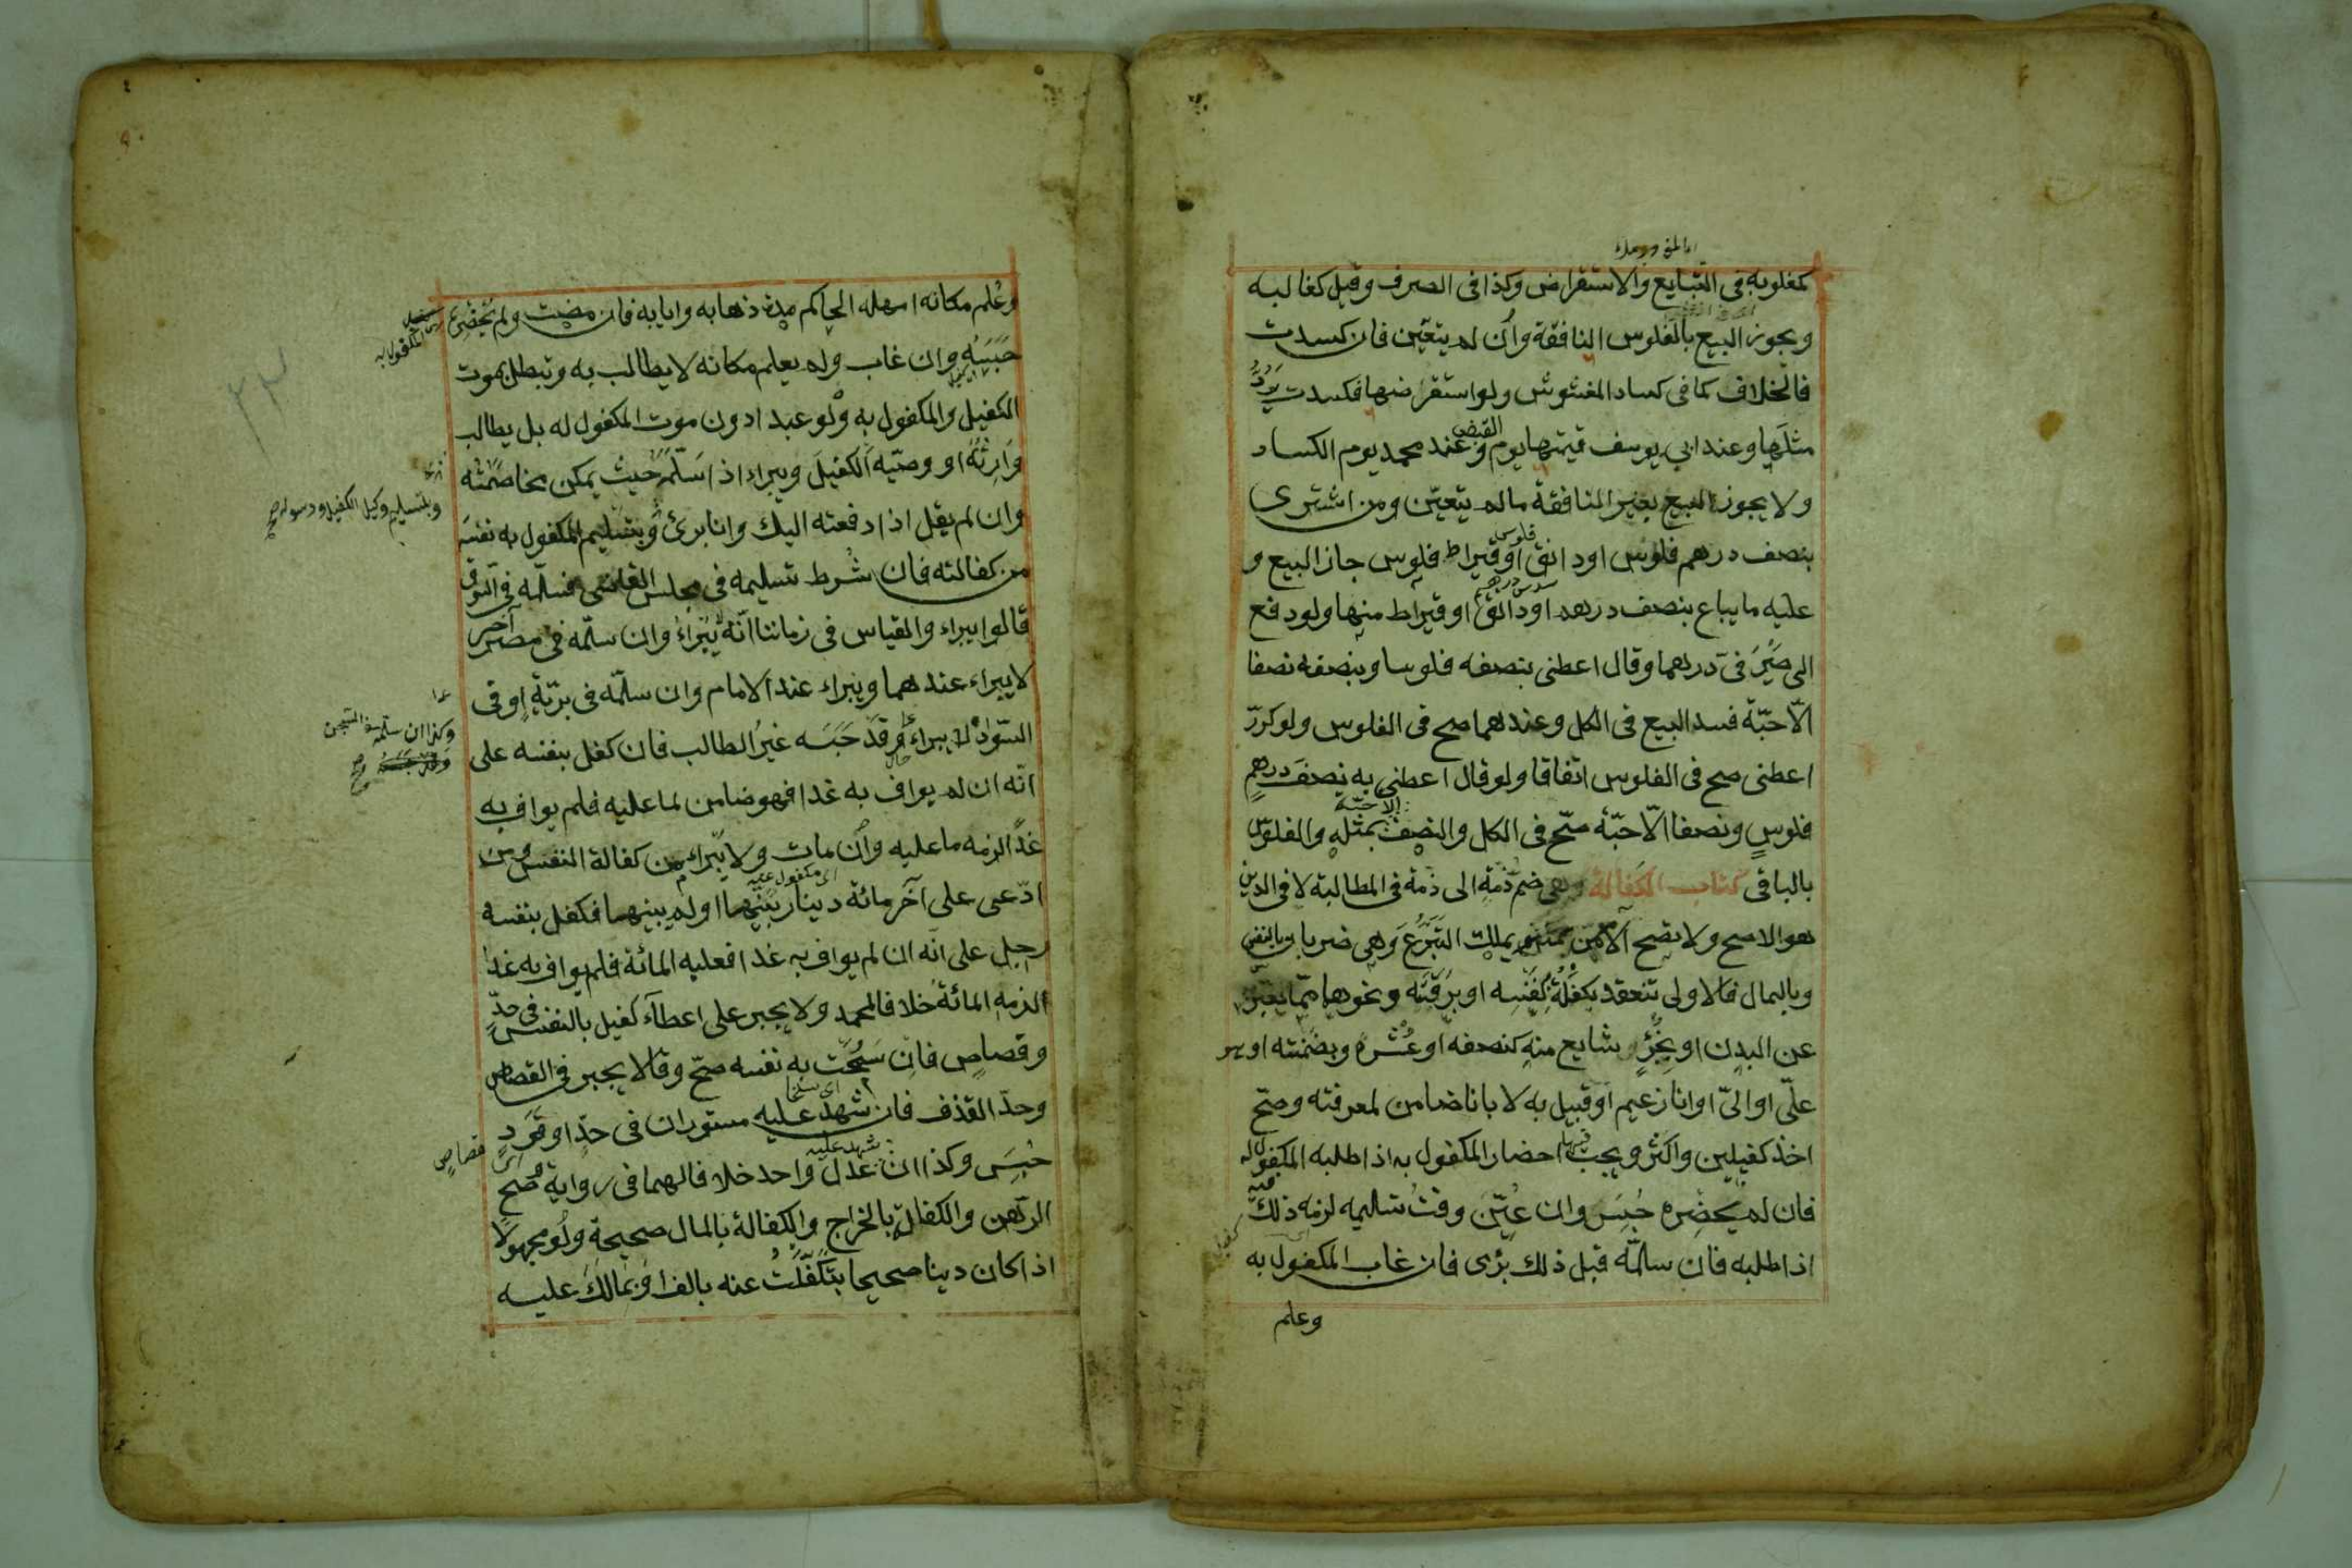 كمغلوبه في التبايع والاستقراض وكذا في الصرف وقيل كغالبه
ويجوز البيع بالفلوس النافقة وان لم يتعين فان كسدت
فالخلاف كما في كساد المغشوش ولو استقرضها فكسدت يردّ
مثلها وعند ابي يوسف قيمتها يوم القبض وعند محمد يوم الكساد
ولا يجوز البيع بغير النافقة ما لم يتعيّن ومن اشترى
بنصف درهم فلوس او دانق فلوس او قيراط فلوس جاز البيع و
عليه ما يباع بنصف درهم او دانق او قيراط منها ولو دفع
الى صيرفي درهما وقال اعطني بنصفه فلوسا وبنصفه نصفا
الّا حبّة فسد البيع في الكل وعندهما صح في الفلوس ولو كرّر
اعطني صح في الفلوس اتفاقا ولو قال اعطني به نصف درهم
فلوس ونصفا الّا حبّة صحّ في الكل والنصف الا حبّة بمثله والفلوس
بالباقي كتاب الكفالة وهي ضم ذمّة الى ذمّة في المطالبة لا في الدين
هو الاصح ولا تصح الّا ممّن يملك التبرّع وهي ضربان بالنفس
وبالمال فالاولى تنعقد بكفلت بنفسه او برقبته ونحوها ممّا يعبّر
عن البدن او بجزء شايع منه كنصفه او عشره وبضمنته او هو
علىّ او الىّ او انا زعيم او قبيل به لا بانا ضامن لمعرفته وصحّ
اخذ كفيلين واكثر ويجب فيها احضار المكفول به اذا طلبه المكفول له
فان لم يحضره حبس وان عيّن وقت تسليمه لزمه ذلك فيه
اذا طلبه فان سلّمه قبل ذلك برئ فان غاب المكفول به
وعلم
وعلم مكانه امهله الحاكم مدة ذهابه وايابه فان مضت ولم يحضره
حبسه وان غاب ولم يعلم مكانه لا يطالب به وتبطل بموت
الكفيل والمكفول به ولو عبدا دون موت المكفول له بل يطالب
وارثه او وصيّه الكفيل ويبراء اذا سلّمه حيث يمكن مخاصمته
وان لم يقل اذا دفعته اليك وانا برئ وبتسليم المكفول به نفسه
وبتسليم وكيل الكفيل ورسوله صح
من كفالته فان شرط تسليمه في مجلس القاضي فسلّمه في السوق
قالوا يبراء والقياس في زماننا انّه لا يبراء وان سلّمه في مصر آخر
لا يبراء عندهما ويبراء عند الامام وان سلّمه في برّية او في
السواد لا يبراء وقد حبسه غير الطالب فان كفل بنفسه على
وكذا ان سلّمه في السجن
انّه ان لم يواف به غدا فهو ضامن لما عليه فلم يواف به
غدًا لزمه ما عليه وان مات ولا يبراء من كفالة النفس ومن
ادّعى على آخر مائة دينار بيّنها او لم يبينها فكفل بنفسه
رجل على انّه ان لم يواف به غدا فعليه المائة فلم يواف به غدا
لزمه المائة خلافا لمحمد ولا يجبر على اعطاء كفيل بالنفس في حدّ
وقصاص فان سمحت به نفسه صحّ وقالا يجبر في القصاص
وحدّ القذف فان شهد عليه مستوران في حدّ او قود
قصاص
حبس وكذا ان شهد عليه عدل واحد خلافا لهما في رواية وصحّ
الرّهن والكفالة بالخراج والكفالة بالمال صحيحة ولو مجهولا
اذا كان دينا صحيحا بتكفّلت عنه بالف او بما لك عليه